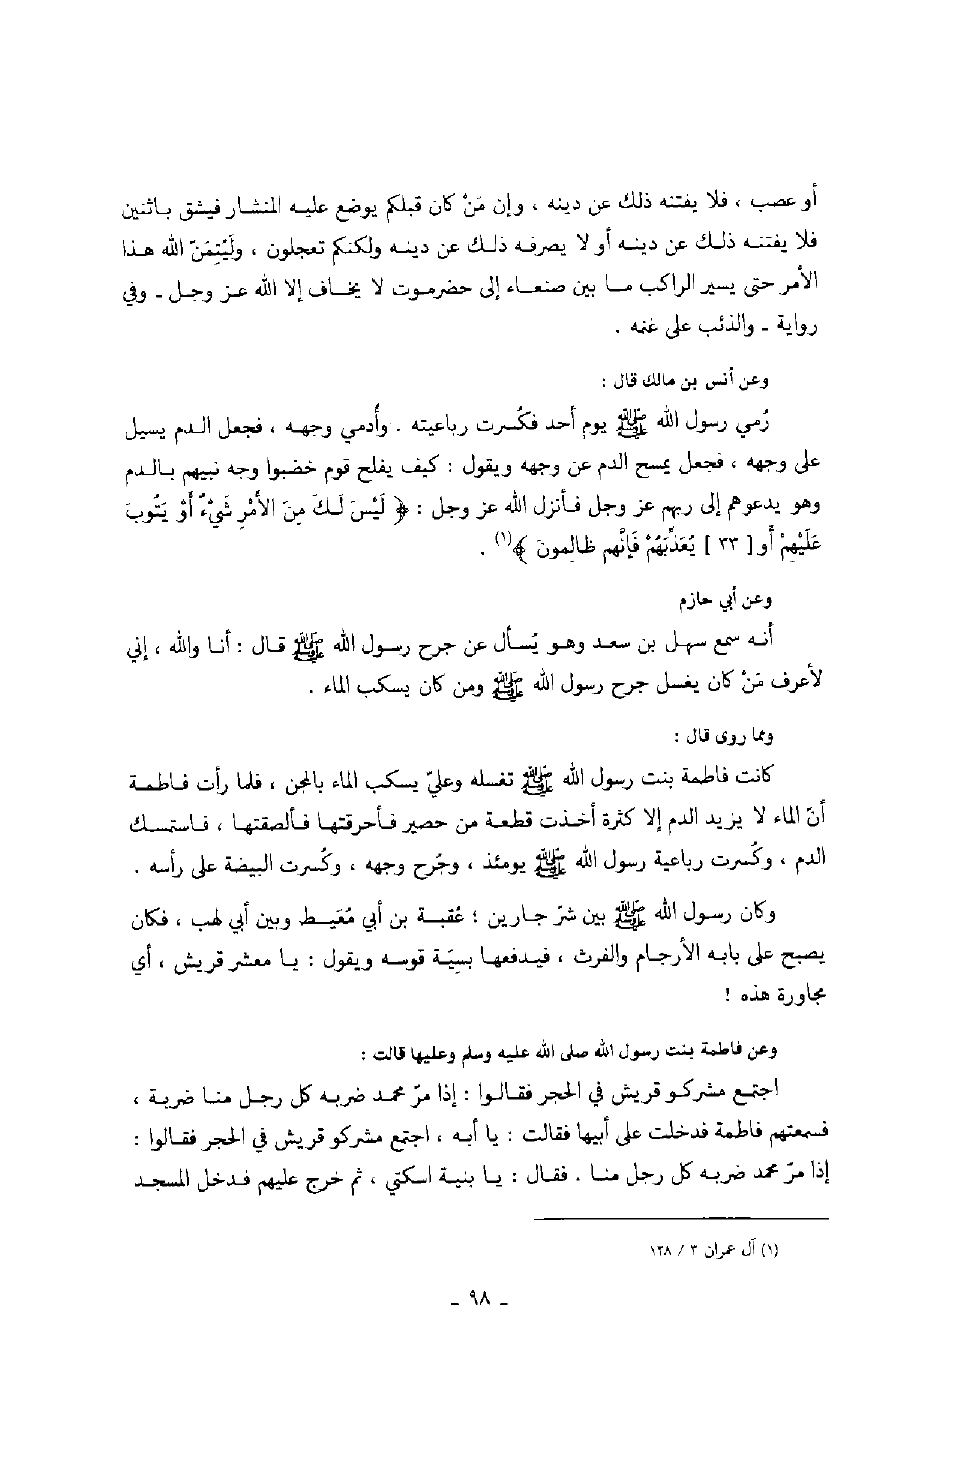 أو عصب ، فلا يفتنه ذلك عن دينه ، وإن مَنْ كان قبلكم يوضع عليه المنشار فيشق باثنين
فلا يفتنه ذلك عن دينه أو لا يصرفه ذلك عن دينه ولكنكم تعجلون ، ولَيُتِمَنّ الله هذا
الأمر حتى يسير الراكب ما بين صنعاء إلى حضرموت لا يخاف إلا الله عز وجل - وفي
رواية - والذئب على غنه .
وعن أنس بن مالك قال :
رُمي رسول الله ﷺ يوم أحد فكُسرت رباعيته . وأُدمي وجهه ، فجعل الدم يسيل
على وجهه ، فجعل يمسح الدم عن وجهه ويقول : كيف يفلح قوم خضبوا وجه نبيهم بالدم
وهو يدعوهم إلى ربهم عز وجل فأنزل الله عز وجل : ﴿ لَيْسَ لَكَ مِنَ الأمْرِ شَيْءٌ أوْ يَتُوبَ
عَلَيْهِمْ أو [ ٣٣ ] يُعَذّبَهُمْ فَإنَّهم ظالِمونَ ﴾(١) .
وعن أبي حازم
أنه سمع سهل بن سعد وهو يُسأل عن جرح رسول الله ﷺ قال : أنا والله ، إني
لأعرف مَنْ كان يغسل جرح رسول الله ﷺ ومن كان يسكب الماء .
ومما روى قال :
كانت فاطمة بنت رسول الله ﷺ تغسله وعليّ يسكب الماء بالمجن ، فلما رأت فاطمة
أنّ الماء لا يزيد الدم إلا كثرة أخذت قطعة من حصير فأحرقتها فألصقتها ، فاستمسك
الدم ، وكُسرت رباعية رسول الله ﷺ يومئذ ، وجُرح وجهه ، وكُسرت البيضة على رأسه .
وكان رسول الله ﷺ بين شرّ جارين ؛ عُقبة بن أبي مُعَيط وبين أبي لهب ، فكان
يصبح على بابه الأرجام والفرث ، فيدفعها بسِيَة قوسه ويقول : يا معشر قريش ، أي
مجاورة هذه !
وعن فاطمة بنت رسول الله صلى الله عليه وسلم وعليها قالت :
اجتمع مشركو قريش في الحجر فقالوا : إذا مرّ محمد ضربه كل رجل منا ضربة ،
فسمعتهم فاطمة فدخلت على أبيها فقالت : يا أبه ، اجتمع مشركو قريش في الحجر فقالوا :
إذا مرّ محمد ضربه كل رجل منا . فقال : يا بنية اسكتي ، ثم خرج عليهم فدخل المسجد
(١) آل عمران ٣ / ١٢٨
- ٩٨ -